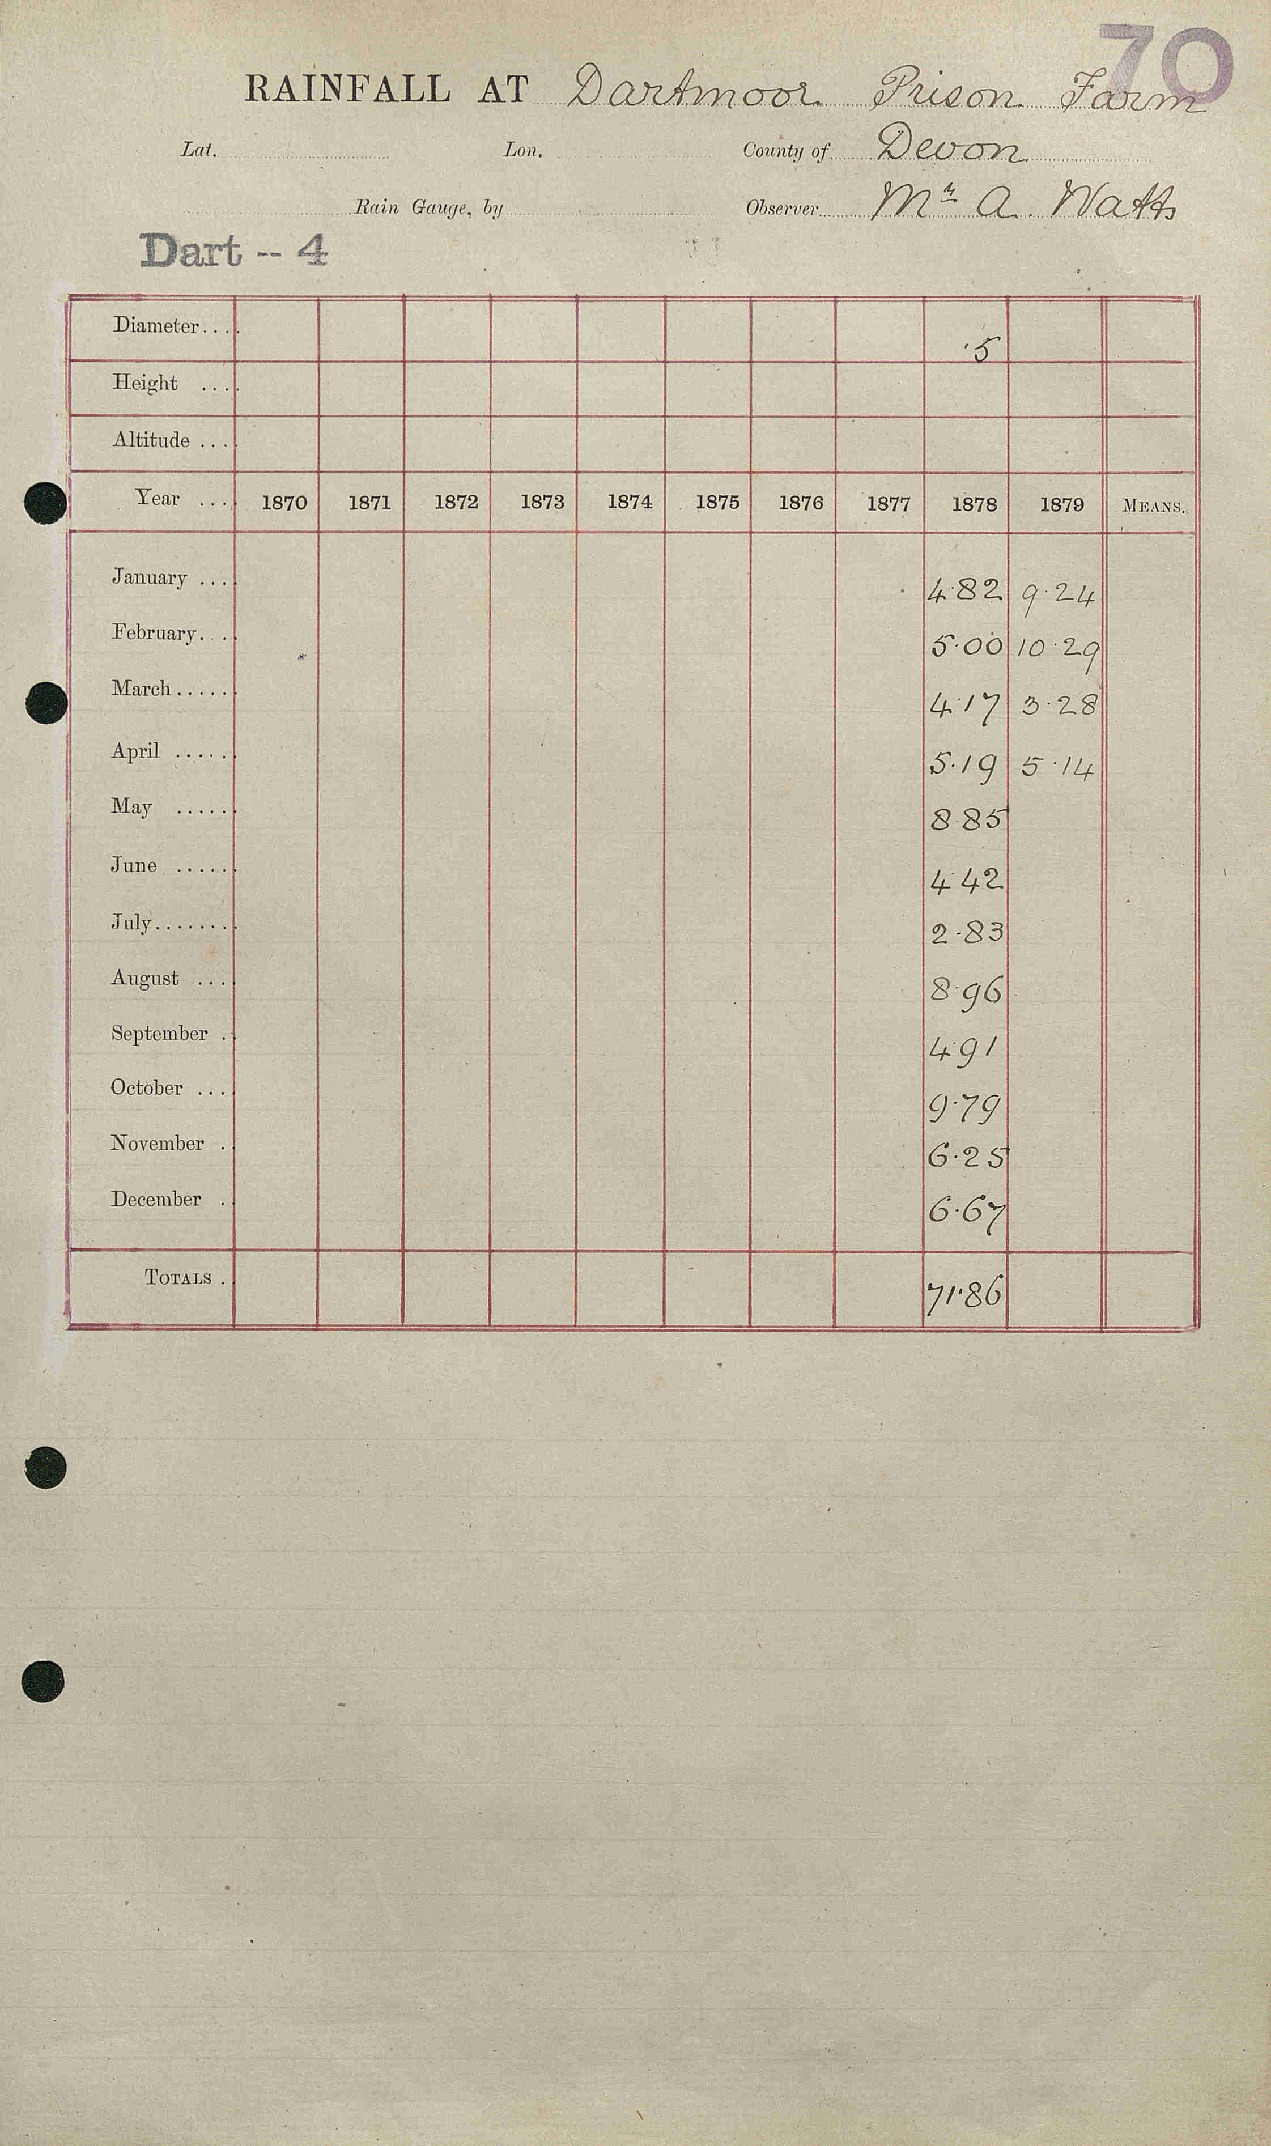 70
RAINFALL AT Dartmoor Prison Farm
Lat. Lon. County of Devon
Rain Gauge, by Observer Mr A. Watts
Dart -- 4
Diameter.... ·5
Height ....
Altitude ....
Year .... 1870 1871 1872 1873 1874 1875 1876 1877 1878 1879 MEANS.
January .... 4·82 9·24
February.... 5·00 10·29
March...... 4·17 3·28
April ...... 5·19 5·14
May ...... 8·85
June ...... 4·42
July........ 2·83
August .... 8·96
September . 4·91
October .... 9·79
November . 6·25
December . 6·67
TOTALS . 71·86